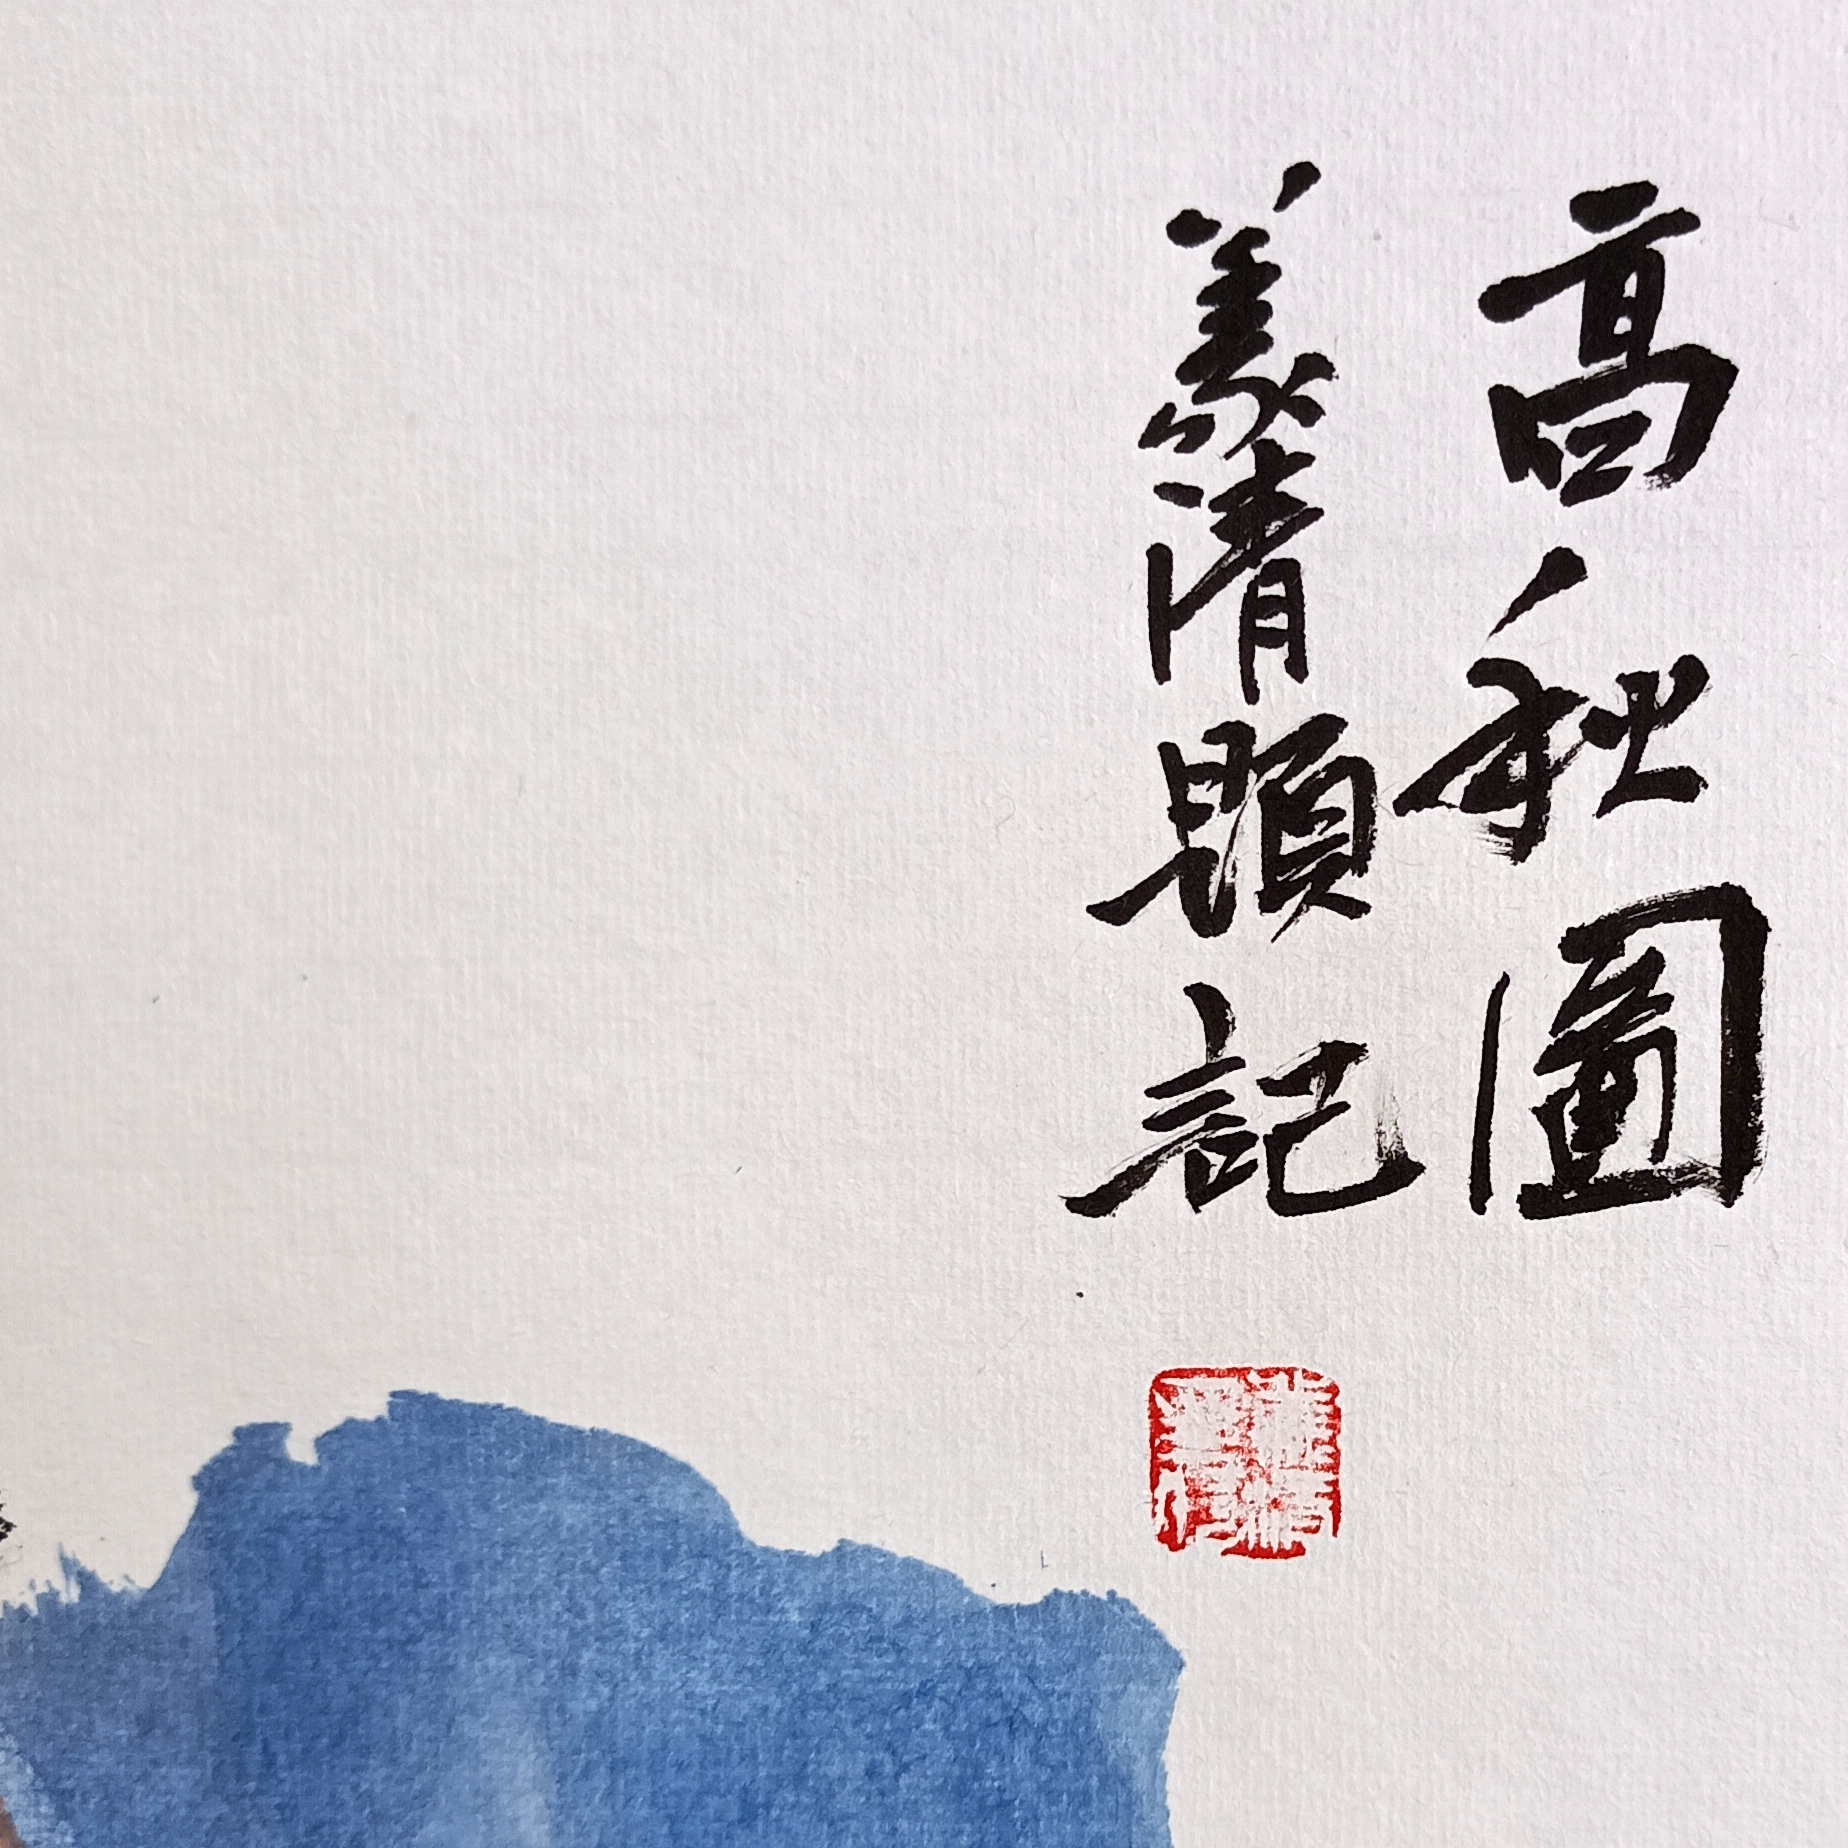 高秋圖
義清題記